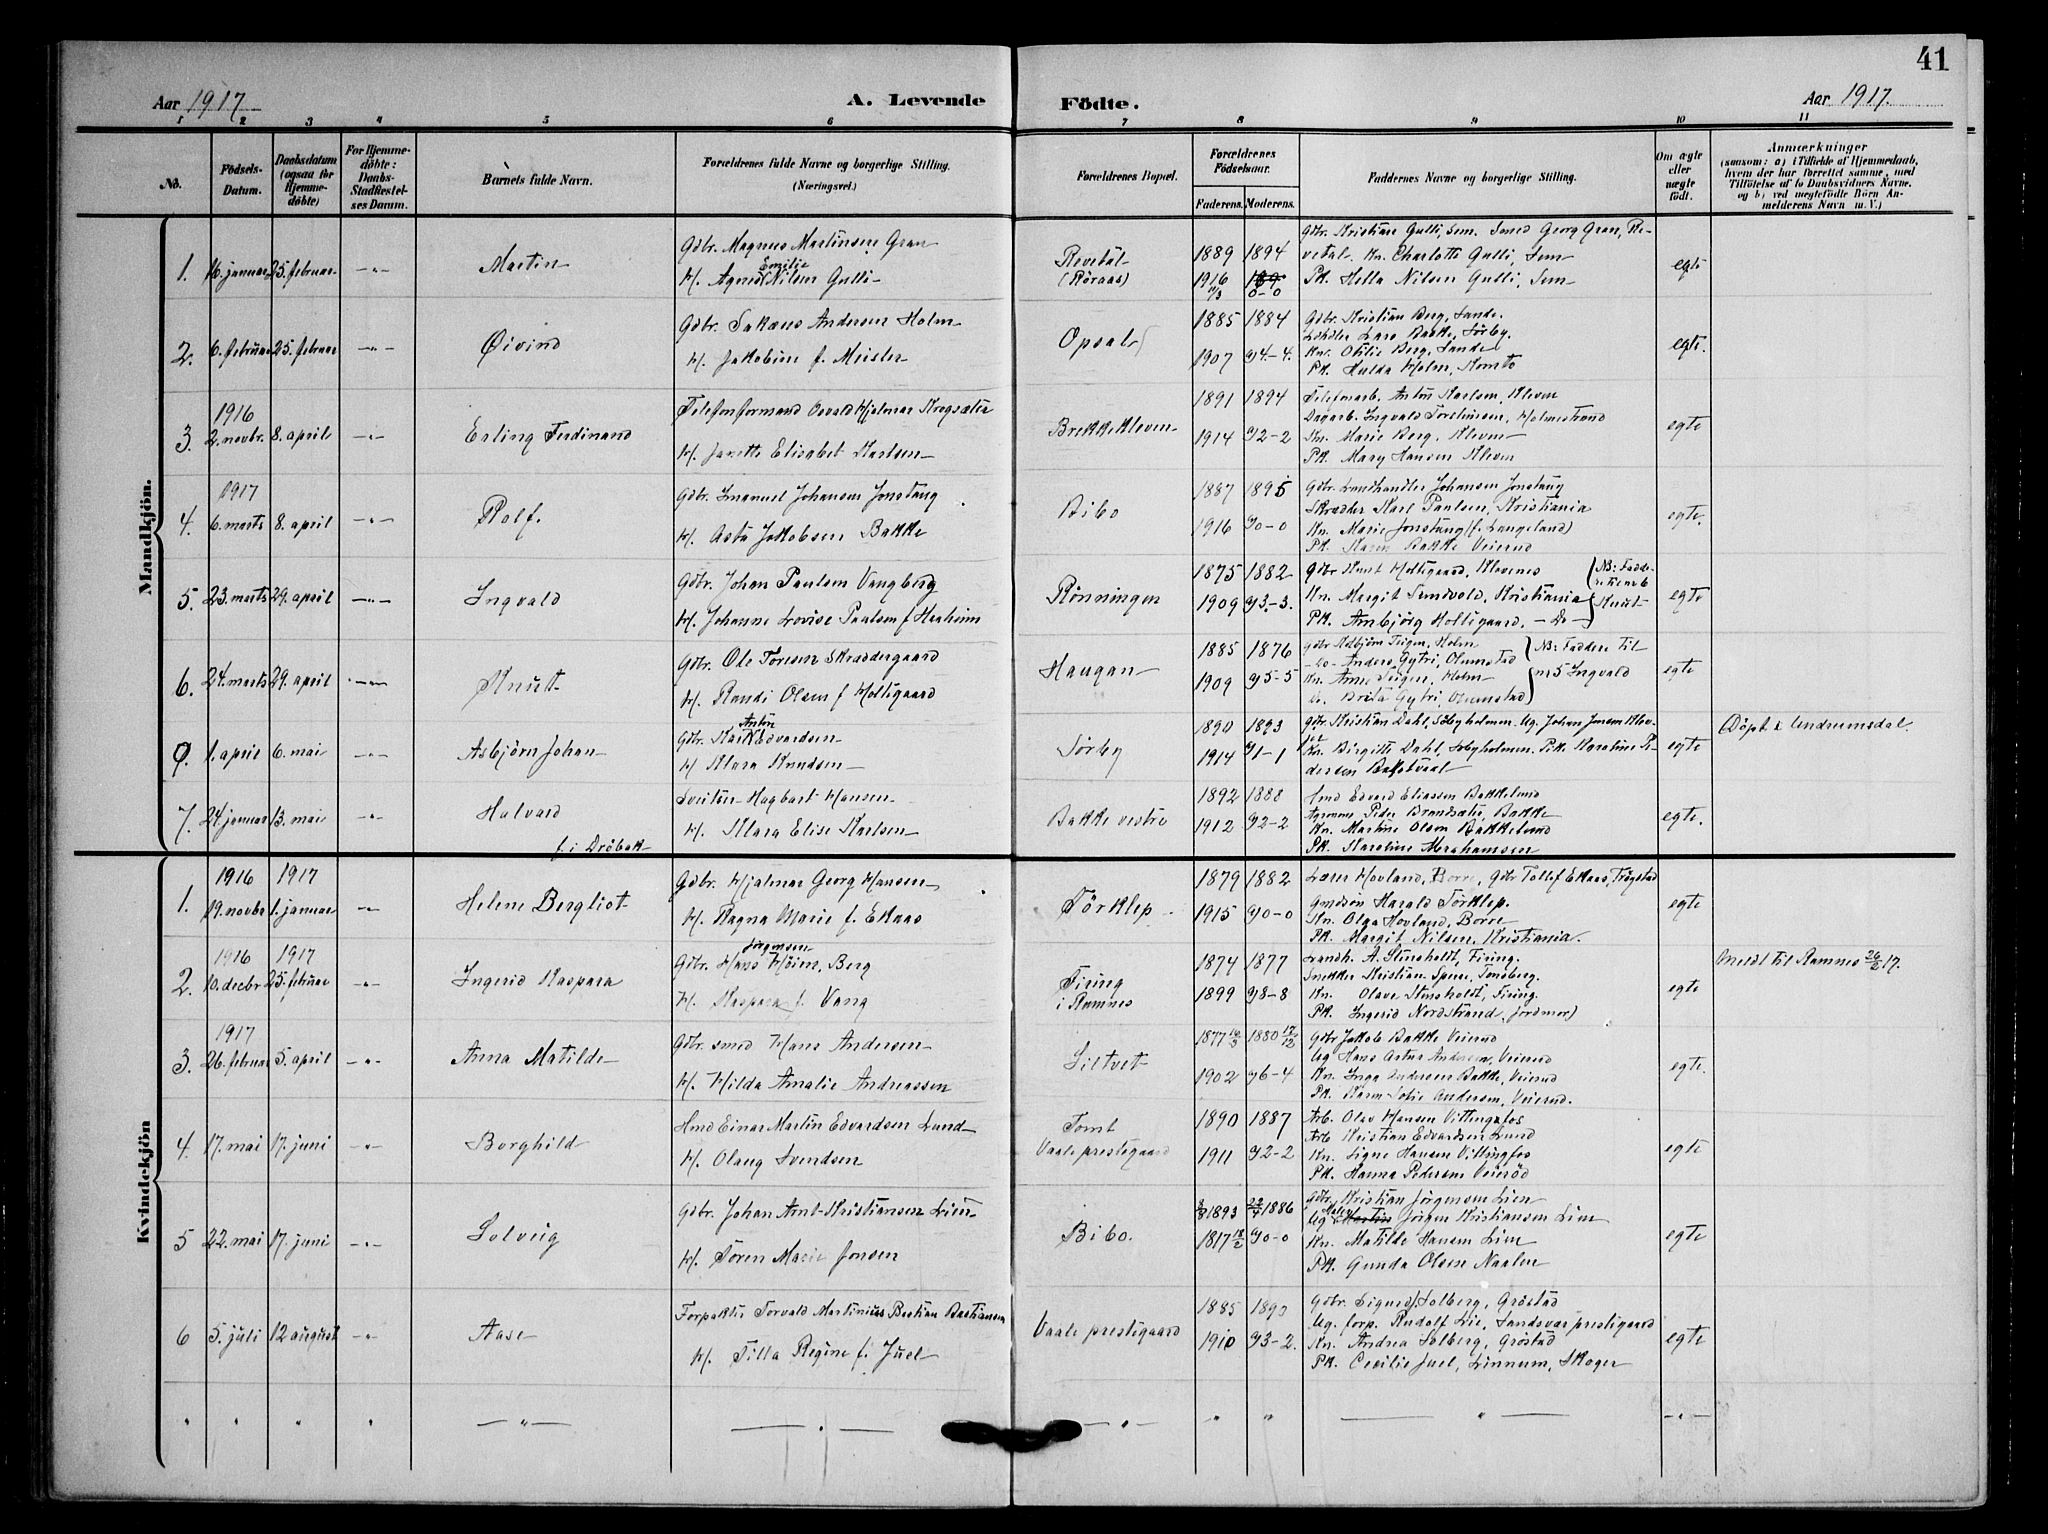 41
Aar 1917
A. Levende
Födte.
Aar 1917.
1 2 3 4 5 6 7 8 9 10 11
No.
Födsels-Datum.
Daabsdatum (ogsaa for Hjemme-döbte)
For Hjemme-döbte: Daabs-Stadfæstel-ses Datum.
Barnets fulde Navn.
Forældrenes fulde Navne og borgerlige Stilling. (Næringsvei.)
Forældrenes Bopæl.
Forældrenes Födselsaar.
Faderens. Moderens.
Faddernes Navne og borgerlige Stilling.
Om ægte eller uægte födt.
Anmærkninger
(saasom: a) i Tilfælde af Hjemmedaab,
hvem der har forrettet samme, med
Tilföielse af to Daabsvidners Navne.
og b) ved uægtefödte Börn An-
melderens Navn m. V.)
Mandkjön.
1. 16. januar 25. februar Martin
Gdbr. Magnus Martinsen Gran
H. Agnes Emilie Nilsen Gulli
Revetal (Röraas)
1889 1894
1916 11/3 0-0
Gdbr. Kristian Gulli, Sem. Smed Georg Gran, Re-
vetal. Kn. Charlotte Gulli, Sem
Pk. Hella Nilsen Gulli, Sem
egte
2. 6. februar 25. februar Øivind
Gdbr. Sakæus Andersen Holm
H. Jakobine f. Meisler
Opsal
1885 1884
1907 4-4.
Gdbr. Kristian Berg, Sande.
Lars Bakke, Sörby.
Kn. Otilie Berg, Sande
Pk. Hulda Holm, Komto
egte.
3. 1916 2. novbr. 8. april Erling Ferdinand
Telefonformand Osvald Hjalmar Krogsæter
H. Janette Elisabet Karlsen
Brekkekleven
1891 1894
1914 2-2
Telefonarb. Anton Karlsen, Kleven
Dagarb. Ingvald Torstensen, Holmestrand
Kn. Marie Berg, Kleven
Pk. Mary Hansen Kleven
egte
4. 1917 6. marts 8. april Rolf.
Gdbr. Imanuel Johansen Jonstang
H. Asta Jakobsen Bakke
Bibo
1887 1895
1916 0-0
Gdbr. Landhandler Johansen Jonstang
Skrædder Karl Paulsen, Kristiania
Kn. Marie Jonstang (f. Langeland)
Pk. Karen Bakke Veierud
egte.
5. 23. marts 29. april Ingvald
Gdbr. Johan Paulsen Vangberg
H. Johanne Lovise Paulsen f
Rönningen
1875 1882
1909 3-3.
Gdbr Knut Holtigaard, Klevenes
Kn. Margit Sundvold, Kristiania
Pk. Anbjörg Holtigaard. - Do -
NB: Fadde-
re til no 6
Knut
egte
6. 24. marts 29. april Knut
Gdbr. Ole Toresen Skræddergaard
H. Randi Olsen f Holtigaard
Haugan
1885 1876
1909 5-5
Gdbr Teigen, Holm
- Do - Anders Gytri, Olumstad
Kn. Anne Teigen, Holm
do. Brita Gytri, Olumstad
NB: Faddere til
nr 5 Ingvald
egte
0. 1. april 6. mai Asbjörn Johan
Gdbr. Karl Anton Edvardsen
H Klara Knudsen
Sörby
1890 1893
1914 1-1
Gdbr. Kristian Dahl, Söbyholmen. Ug. Johan Jensen
Kn. Birgitte Dahl, Söbyholmen. Pike Karoline Pe-
dersen Bakstvaal
egte
Döpt i Undrumsdal.
7. 24. januar 13. mai Halvard
f. i Dröbak
Hagbart Hansen
H. Klara Elise Karlsen
Bakke vestre
1892 1888
1912 2-2
Smd Edvard Eliassen Bakkelund
Peder Brandsæter, Bakke
Kn. Martine Olsen Bakkelund
Pk. Karoline Abrahamsen
egte.
Kvindekjön
1. 1916 19. novbr 1917 1. januar Helene Bergliot
Gdbr. Hjalmar Georg Hansen
H. Ragna Marie f. Ekaas
Törklep
1879 1882
1915 0-0
Lærer Hovland, Borre, Gdbr Tollef Ekaas, Trögstad
Gmdsön Harald Törklep.
Kn. Olga Hovland, Borre
Pk. Margit Nilsen, Kristiania.
egte
2. 1916 10. decbr 1917 25. februar Ingerid Kaspara
Gdbr. Hans Jörgensen Höien, Berg
H. Kaspara f. Vang
Firing i Ramnes
1874 1877
1899 8-8
Landh. A. Stensholdt, Firing.
Snekker Kristian Spere, Tönsberg.
Kn. Olave Stensholdt, Firing.
Pk. Ingerid Nordstrand, jordmor)
egte
Meldt til Ramnes 26/2 17.
3. 1917 26. februar 5. april Anna Matilde
Gdbr. smed Hans Andersen
H. Hilda Amalie Andreassen
Siltvet
1877 16/3 1880 17/12
1902 6-4
Gdbr Jakob Bakke Veierud
Ug Hans Artur Andersen, Veierud
Kn. Inga Andersen Bakke, Veierud
Pk. Karen Sofie Andersen, Veierud.
egte.
4. 17. mai 17. juni Borghild
Smd Einar Martin Edvardsen Lund
H. Olaug Svendsen
Tomt
Vaale prestegaard
1890 1887
1911 2-2
Arb. Olav Hansen Vittingsfos
Arb Kristian Edvardsen Lund
Kn. Signe Hansen Vittingfos
Pk. Hanna Pedersen Veieröd
egte
5 22. mai 17. juni Solveig
Gdbr. Johan Arnt Kristiansen Lien
H. Sören Marie Jonsen
Bibo.
1893 1886
1817 18/2 0-0
Gdbr. Kristian Jörgensen Lien
Ug Jörgen Kristiansen Lien
Kn. Matilde Hansen Lien
Pk. Gunda Olsen Naalen
egte
6 5. juli 12 august Aase
Forpakter Torvald Martinius Bastian Bastiansen
H. Tilla Regine f. Juel
Vaale prestegaard
1885 1890
1910 3-2.
Gdbr. Sigurd Solberg, Gröstad
Ug. forp. Rudolf Lie, Sandsvær prestegaard
Kn. Andrea Solberg, Gröstad
Pk. Cecilie Juel, Linnum, Skoger
egte